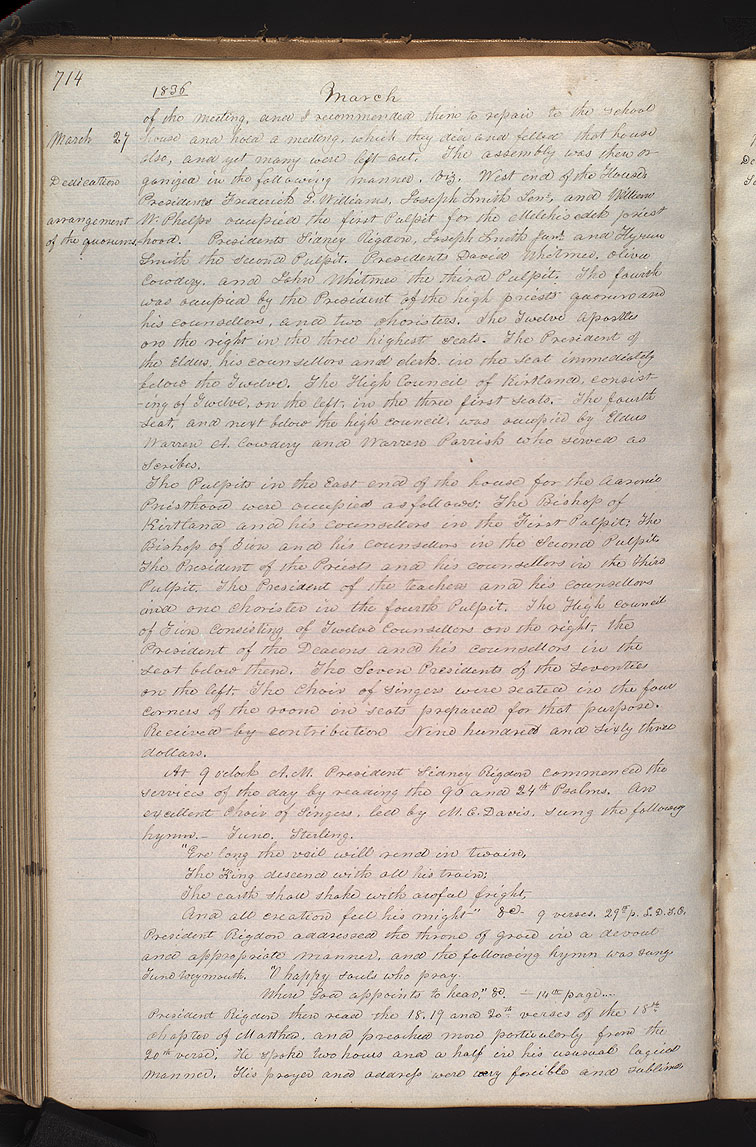 714
1836
March
of the meeting, and I recommended them to repair to the school
March 27 house and hold a meeting, which they did and filled that house
also, and yet many were left out. The assembly was then or-
Dedication ganized in the following manner. viz. West end of the House:
Presidents Frederick G. Williams, Joseph Smith Senr, and William
arrangement W. Phelps occupied the first Pulpit for the Melchisedek priest
of the quorums. hood. Presidents Sidney Rigdon, Joseph Smith Junr. and Hyrum
Smith the second Pulpit. Presidents David Whitmer, Oliver
Cowdery, and John Whitmer the third Pulpit. The fourth
was occupied by the President of the high priests quorum and
his counsellors, and two choristers. The Twelve Apostles
on the right in the three highest seats. The President of
the Elders, his counsellors and clerk in the seat immediately
below the Twelve. The High Council of Kirtland, consist-
-ing of Twelve, on the left, in the three first seats. The fourth
seat, and next below the high council, was occupied by Elders
Warren A. Cowdery and Warren Parrish who served as
Scribes.
The Pulpits in the East end of the house for the Aaronic
Priesthood were occupied as follows: The Bishop of
Kirtland and his counsellors in the First Pulpit; The
Bishop of Zion and his counsellors in the Second Pulpit
The President of the Priests and his counsellors in the Third
Pulpit. The President of the teachers and his counsellors
and one chorister in the fourth Pulpit. The High council
of Zion consisting of Twelve Counsellors on the right. the
President of the Deacons and his counsellors in the
seat below them. The Seven Presidents of the Seventies
on the left. The Choir of Singers were seated in the four
corners of the room in seats prepared for that purpose.
Received by contribution Nine hundred and sixty three
dollars.
At 9 oclock A.M. President Sidney Rigdon commenced the
services of the day by reading the 96 and 24th Psalms. An
excellent Choir of Singers, led by M. C. Davis, sung the following
hymn.— Tune. Sterling.
"Ere long the veil will rend in twain,
The King descend with all his train;
The earth shall shake with awful fright,
And all creation feel his might" &c- 9 verses. 29th p. L.D.S.C.
President Rigdon addressed the throne of grace in a devout
and appropriate manner, and the following hymn was sung
Tune Weymouth. "O happy souls who pray
Where God appoints to hear," &c. —14th page.—
President Rigdon then read the 18, 19 and 20th verses of the 18th
chapter of Matthew, and preached more particularly from the
20th verse. He spoke two hours and a half in his usual logical
manner. His prayer and address were very forcible and sublime